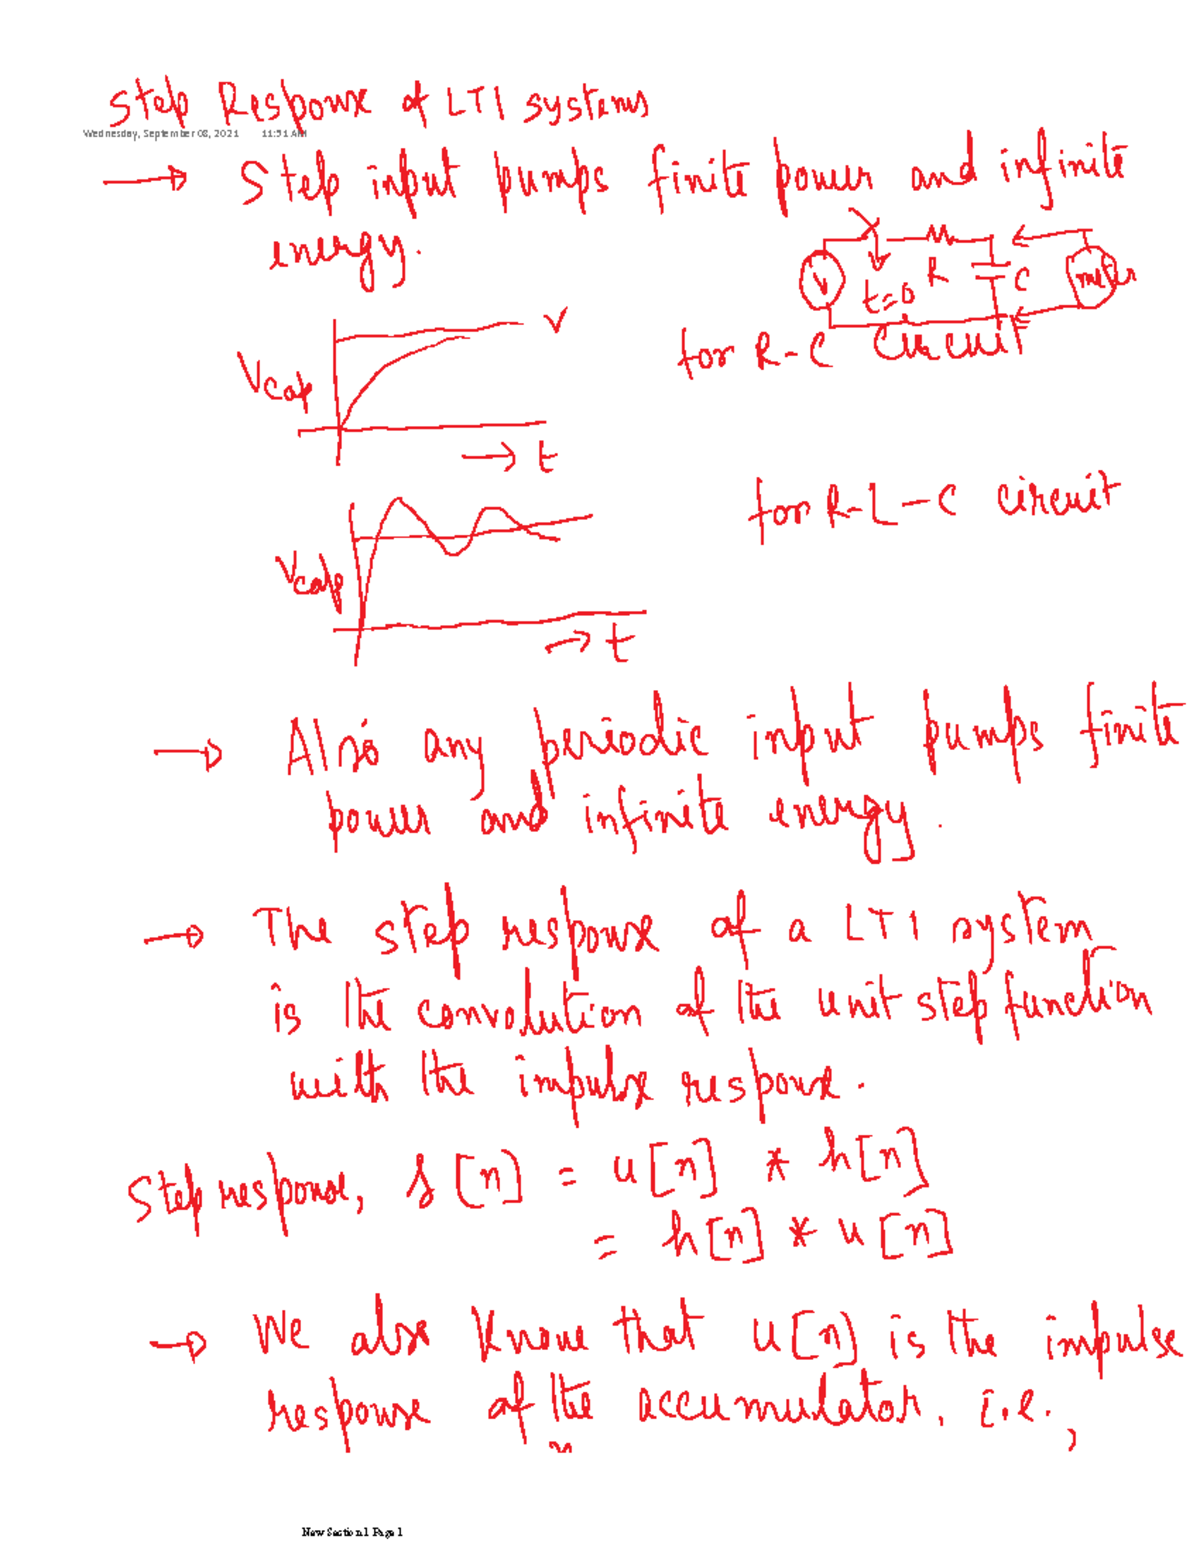 Step Response of LTI systems
Wednesday, September 08, 2021 11:51 AM
→ Step input pumps finite power and infinite
energy.
V t=0 R C meter
for R-C circuit
V
Vcap
→ t
for R-L-C circuit
Vcap
→ t
→ Also any periodic input pumps finite
power and infinite energy.
→ The step response of a LTI system
is the convolution of the unit step function
with the impulse response.
Step response, s[n] = u[n] * h[n]
= h[n] * u[n]
→ We also know that u[n] is the impulse
response of the accumulator. i.e.,
New Section1 Page 1